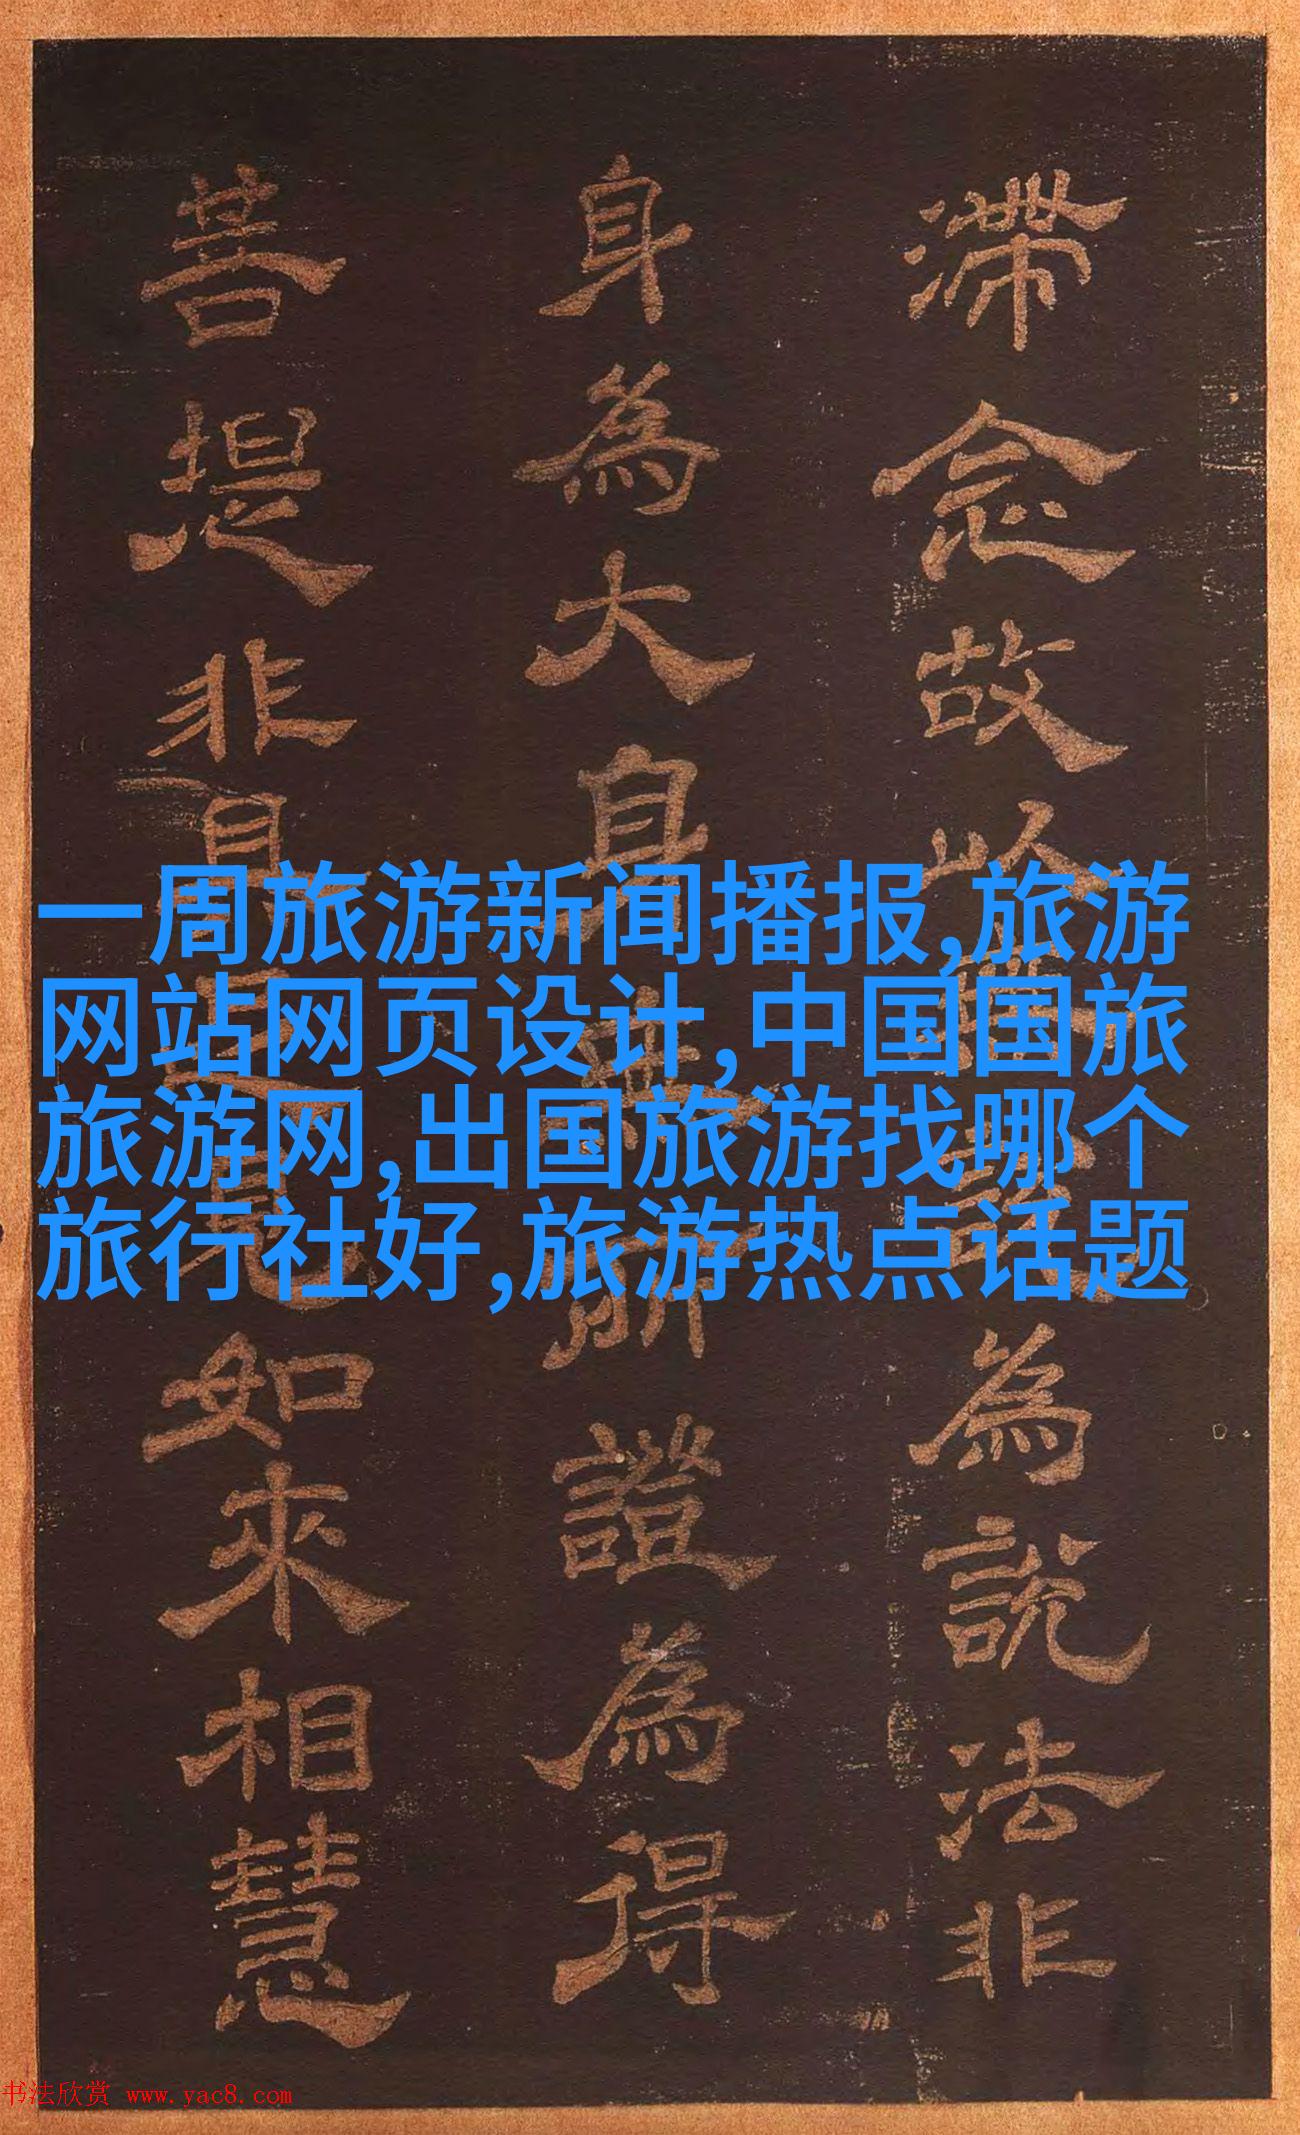 滯念故於為說法非
身為大身無所證為得
菩提非見如來相慧
一周旅游新闻播报,旅游
网站网页设计,中国国旅
旅游网,出国旅游找哪个
旅行社好,旅游热点话题
书法欣赏 www.yac8.com